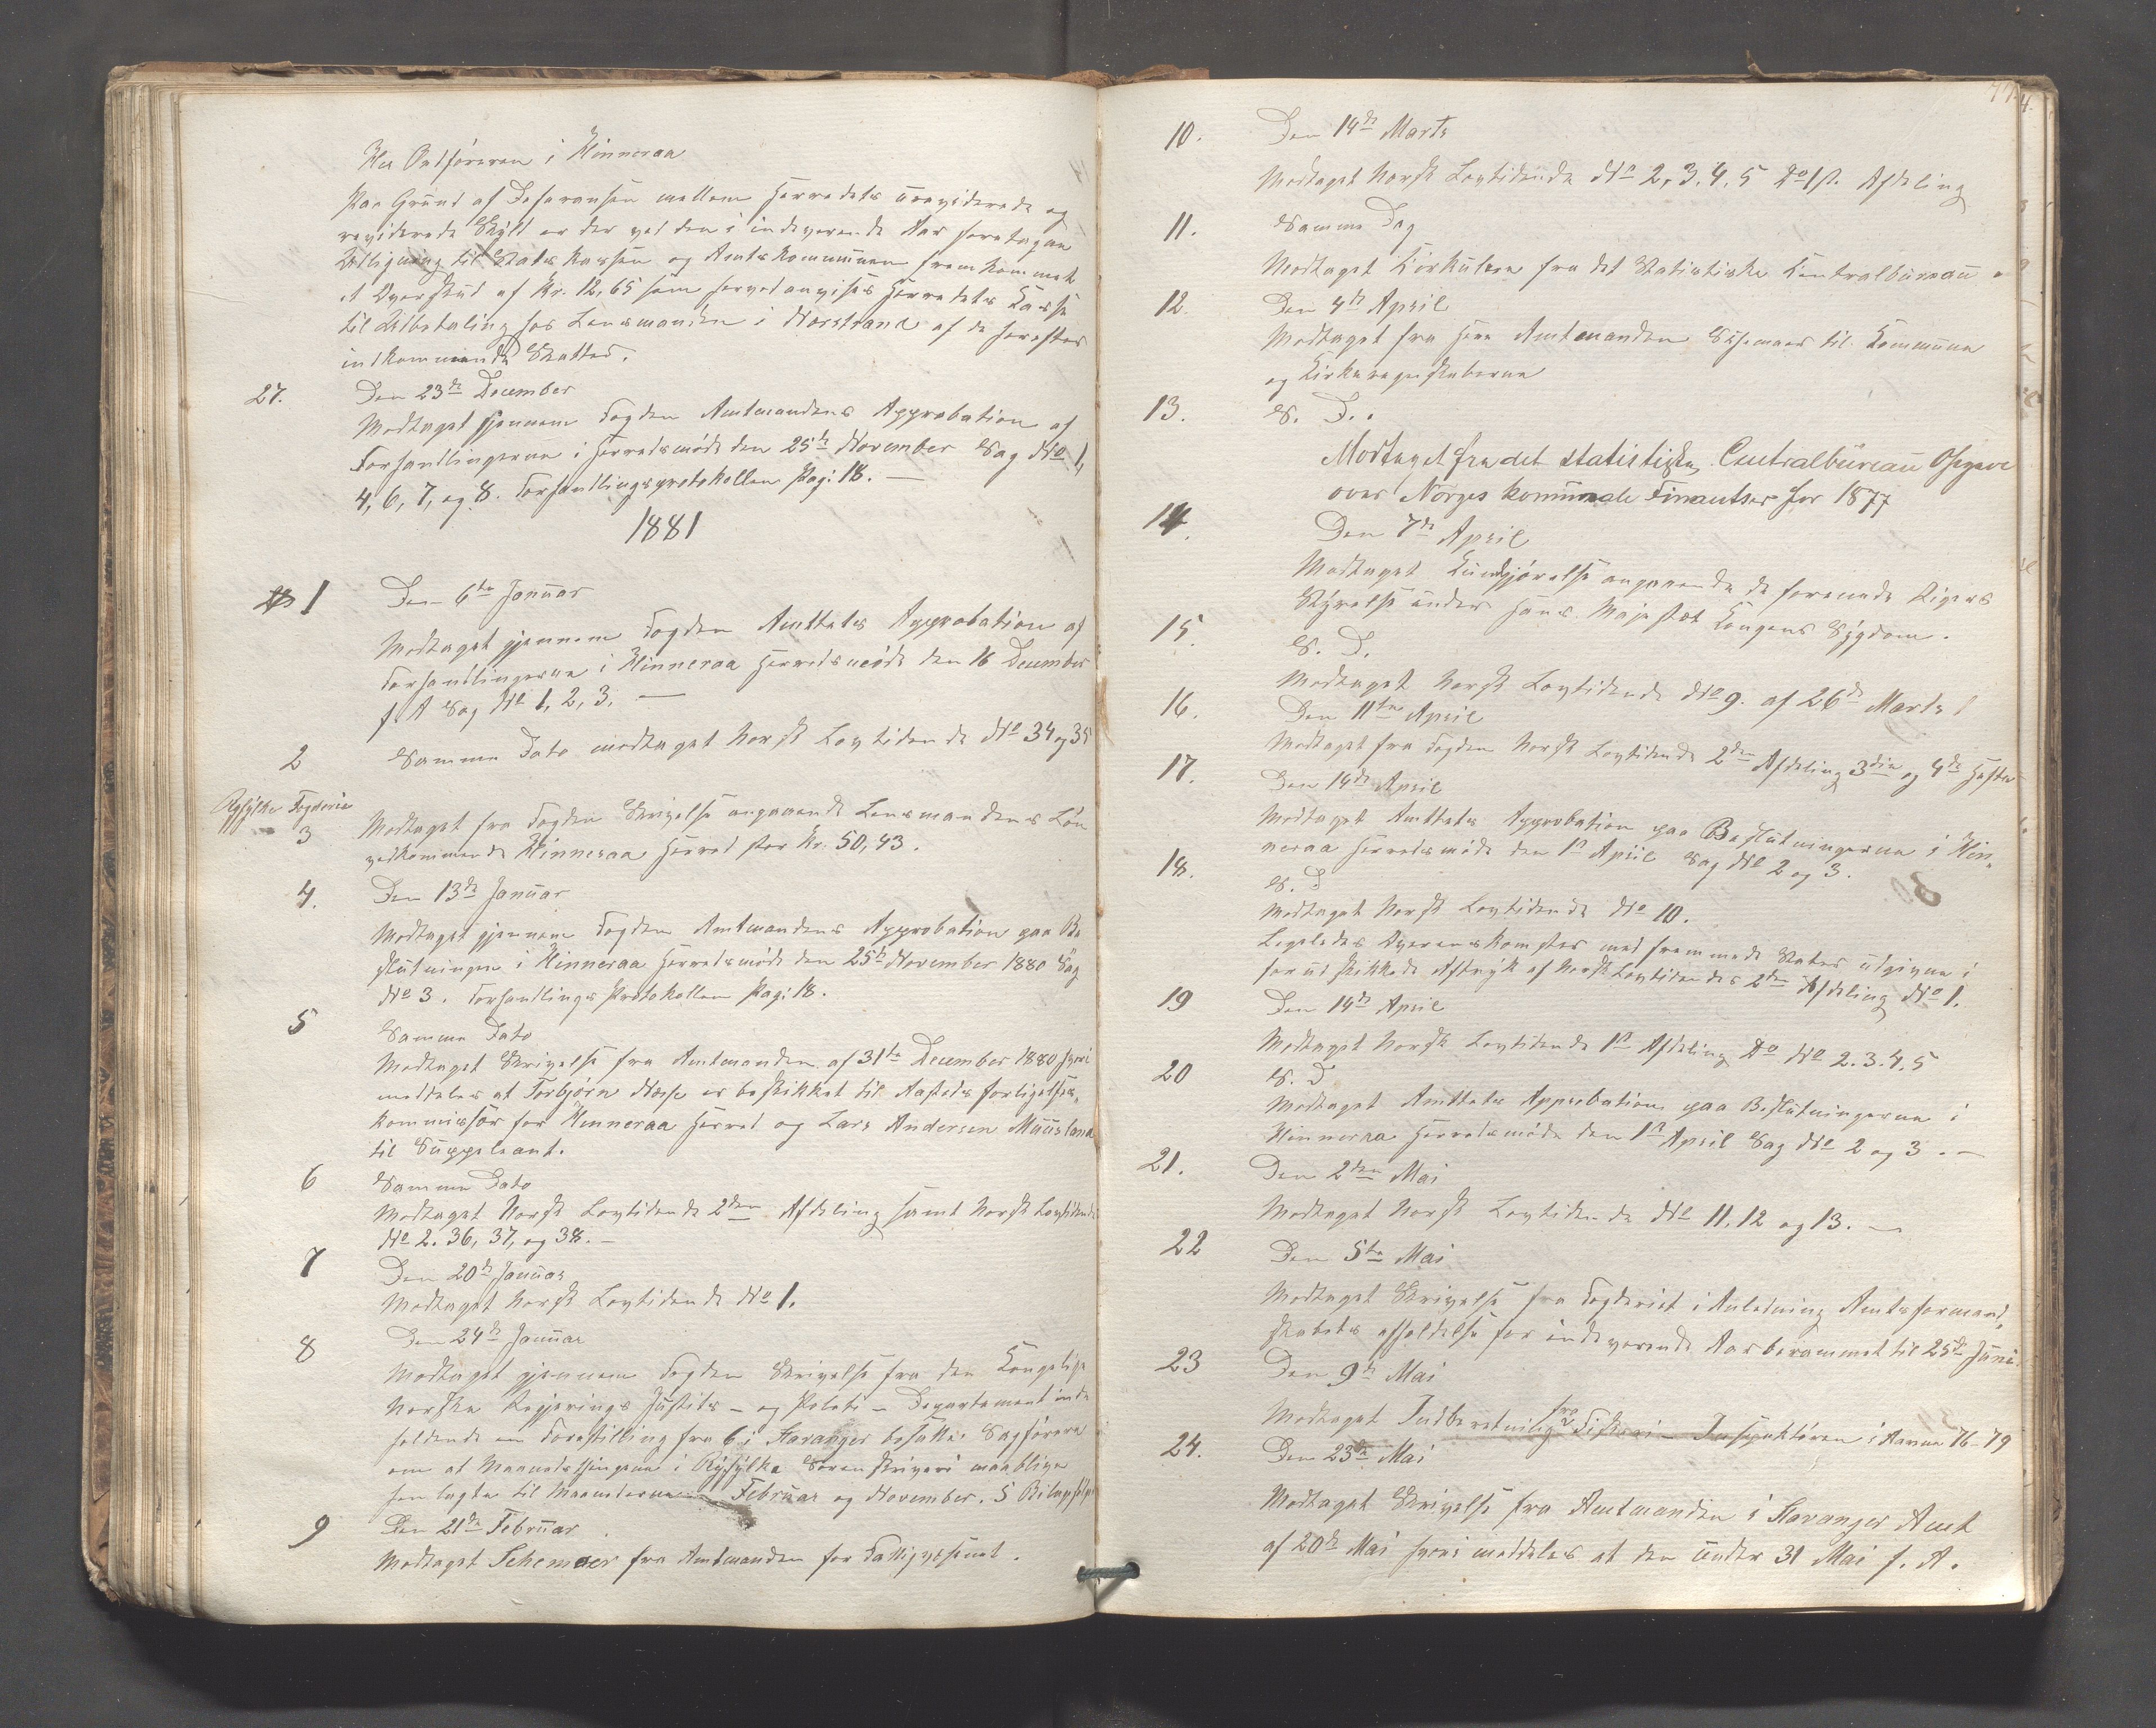 Hr Ordføreren i Hinneraa
Paa Grund af Differansen mellem Herredets ureviderede og
reviderede Skyld er der ved den i indeværende Aar foretagne
Udligning til Statskassen og Amtskommunen fremkommet
et Overskud af Kr. 12,65 som herved anvises Herredets Kasse
til Udbetaling hos Lensmanden i Nærstrand af de herefter
indkommende Skatter.
27.
Den 23de December
Modtaget gjennem Fogden Amtmandens Approbation af
Forhandlingerne i Herredsmøde den 25de November Sag No 1,
4, 6, 7, og 8. Forhandlingsprotokollen Pag: 18. —
1881
1
Den 6te Januar
Modtaget gjennem Fogden Amtets Approbation af
Forhandlingerne i Hinneraa Herredsmøde den 16 December
f. A Sag No 1, 2, 3. —
2
Samme Dato modtaget Norsk Lovtidende No 34 og 35
Ryfylke Fogderie
3
Modtaget fra Fogden Skrivelse angaaende Lensmandens Løn
vedkommende Hinneraa Herred stor Kr. 50,43.
4.
Den 13de Januar
Modtaget gjennem Fogden Amtmandens Approbation paa Be
slutningen i Hinneraa Herredsmøde den 25de November 1880 Sag
No 3. Forhandlings Protokollen Pag: 18.
5
Samme Dato
Modtaget Skrivelse fra Amtmanden af 31te December 1880 hvori
meddeles at Torbjørn Næsse er beskikket til Aasteds forligelses
kommissær for Hinneraa Herred og Lars Andersen Muusland
til Suppleant.
6
Samme Dato
Modtaget Norsk Lovtidende 2den Afdeling samt Norsk Lovtidende
No 2. 36, 37, og 38. —
7
Den 20de Januar
Modtaget Norsk Lovtidende No 1.
8
Den 24de Januar
Modtaget gjennem Fogden Skrivelse fra den Kongelige
Norske Regjerings Justits- og Politi- Departement inde
holdende en Forestilling fra 6 i Stavanger bosatte Sagførere
om at Maanedsthingene i Ryfylke Sorenskriveri maa blive
henlagte til Maanederne Februar og November. 5 Bilag
9
Den 21de Februar
Modtaget Schemaer fra Amtmanden for Fattigvæsenet.
10.
Den 14de Marts
Modtaget Norsk Lovtidende No 2, 3, 4, 5 Do 1st. Afdeling
11.
Samme Dag
Modtaget Cirkulære fra det Statistiske Centralbureau
12.
Den 4de April
Modtaget fra Herr Amtmanden Schemaer til Kommune
og Kirkeregnskaberne
13.
S. D..
Modtaget fra det statistiske Centralbureau Opgave
over Norges komunale Finantser for 1877
14.
Den 7de April
Modtaget Kundgjørelse angaaende de forenede Rigers
Styrelse under Hans Majestæt Kongens Sygdom.
15.
S. D.
Modtaget Norsk Lovtidende No 9. af 26de Marts
16.
Den 11te April
Modtaget fra Fogden Norsk Lovtidende 2den Afdeling 3die og 4de Hefte
17.
Den 14de April
Modtaget Amtets Approbation paa Beslutningerne i Hin,
neraa Herredsmøde den 1st April Sag No 2 og 3.
18.
S. D
Modtaget Norsk Lovtidende No 10.
Ligeledes Overenskomster med fremmede Stater udgivne i
forudskikkede Aftryk af Norsk Lovtidendes 2den Afdeling No 1.
19
Den 14de April
Modtaget Norsk Lovtidende 1st Afdeling Do No 2. 3. 4. 5
20
S. D
Modtaget Amtets Approbation paa Beslutningerne i
Hinneraa Herredsmøde den 1st April Sag No 2 og 3. —
21.
Den 2den Mai
Modtaget Norsk Lovtidende No 11, 12 og 13. —
22
Den 5te Mai
Modtaget Skrivelse fra Fogderiet i Anledning Amtsformand,
skabets afholdelse for indeværende Aar berammet til 25de Juni
23
Den 9de Mai
Modtaget Indberetning fra Fiskeri- Inspektøren i Aarene 76-79
24.
Den 23de Mai
Modtaget Skrivelse fra Amtmanden i Stavanger Amt
af 20de Mai hvori meddeles at den under 31 Mai f. A.